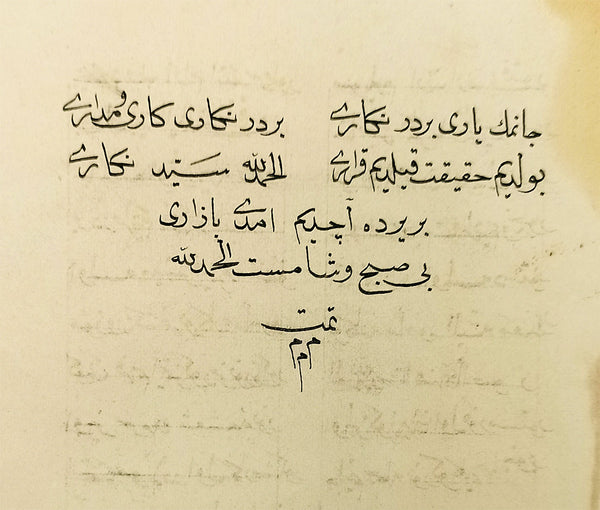 جانمك یاری بردر نكاری بردر نكاری كاری ومداری
بولدیم حقیقت قیلدیم قراری الحمدلله سید نكاری
بریرده آچدیم امدی بازاری
بی صبح وشامست الحمدلله
تمت
م م م